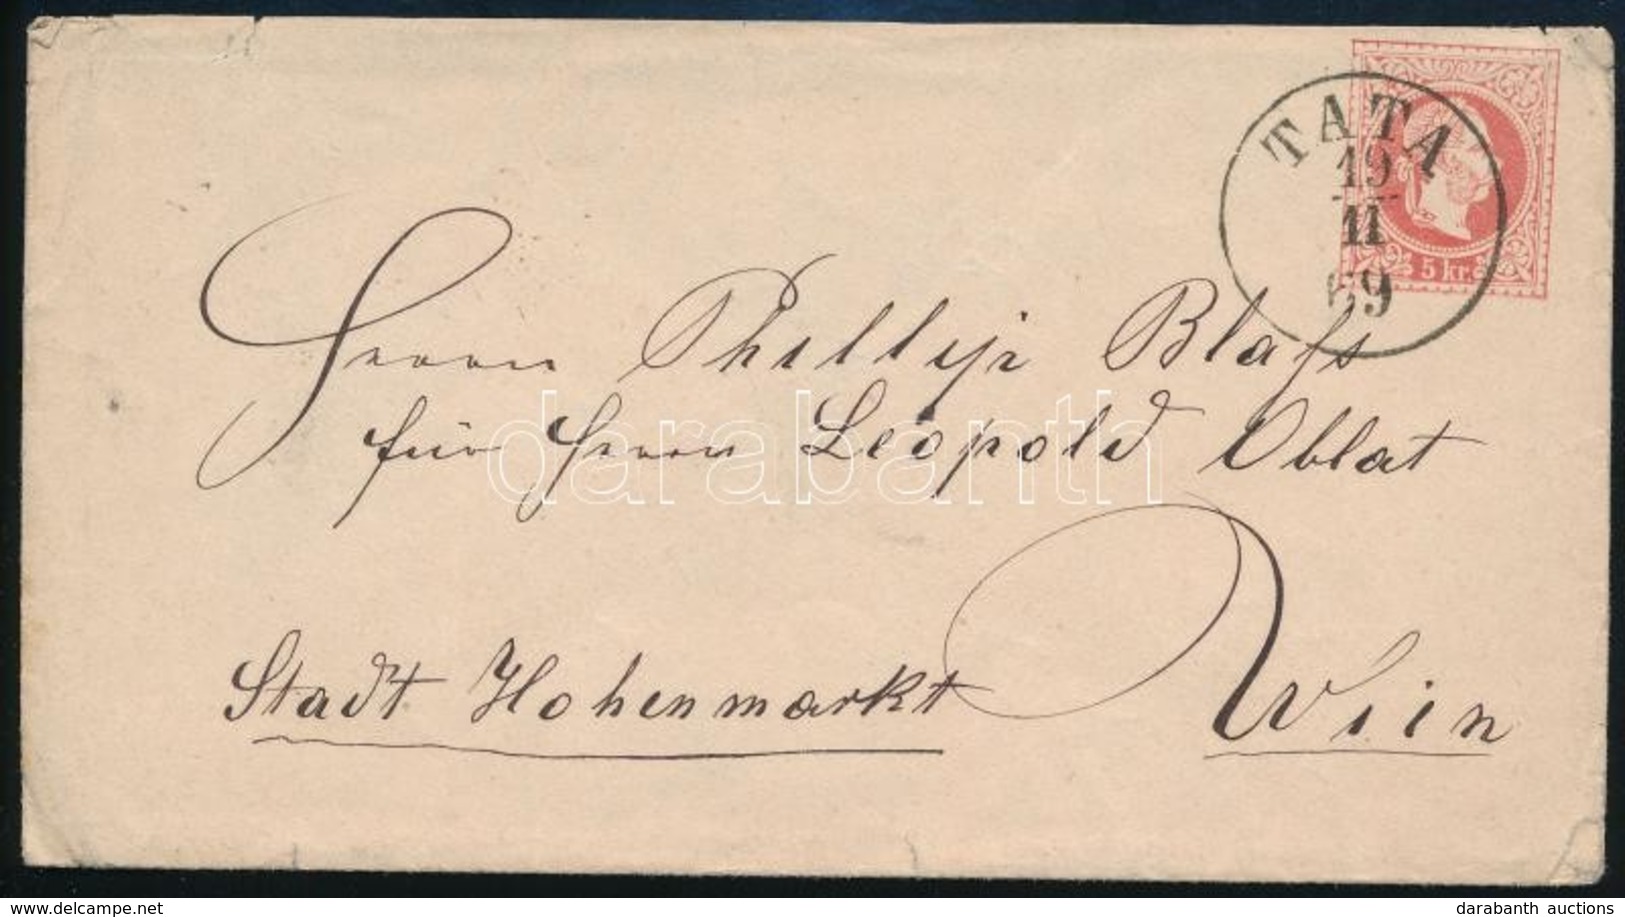 TATA
19
11
69
5 kr.
Herrn Phillip Blaß
für Herrn Leopold Oblat
Stadt Hohenmarkt Wien
darabanth
www.delcampe.net
darabanth auctions